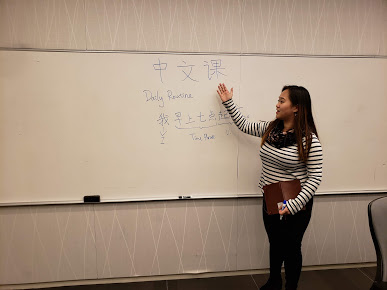 中文课
Daily Routine
我早上七点起
Time Phrase